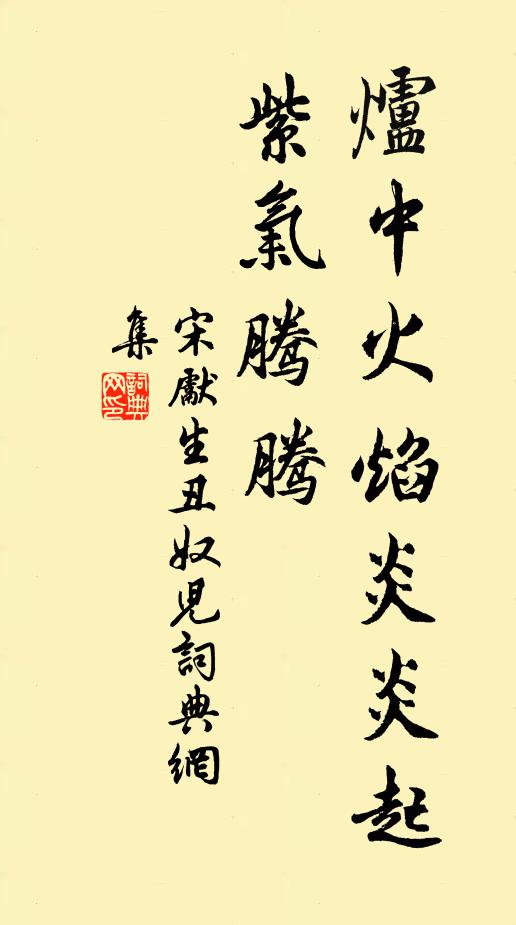 爐中火焰炎炎起
紫氣騰騰
宋獻生丑奴兒詞典網
集
詞典
网印